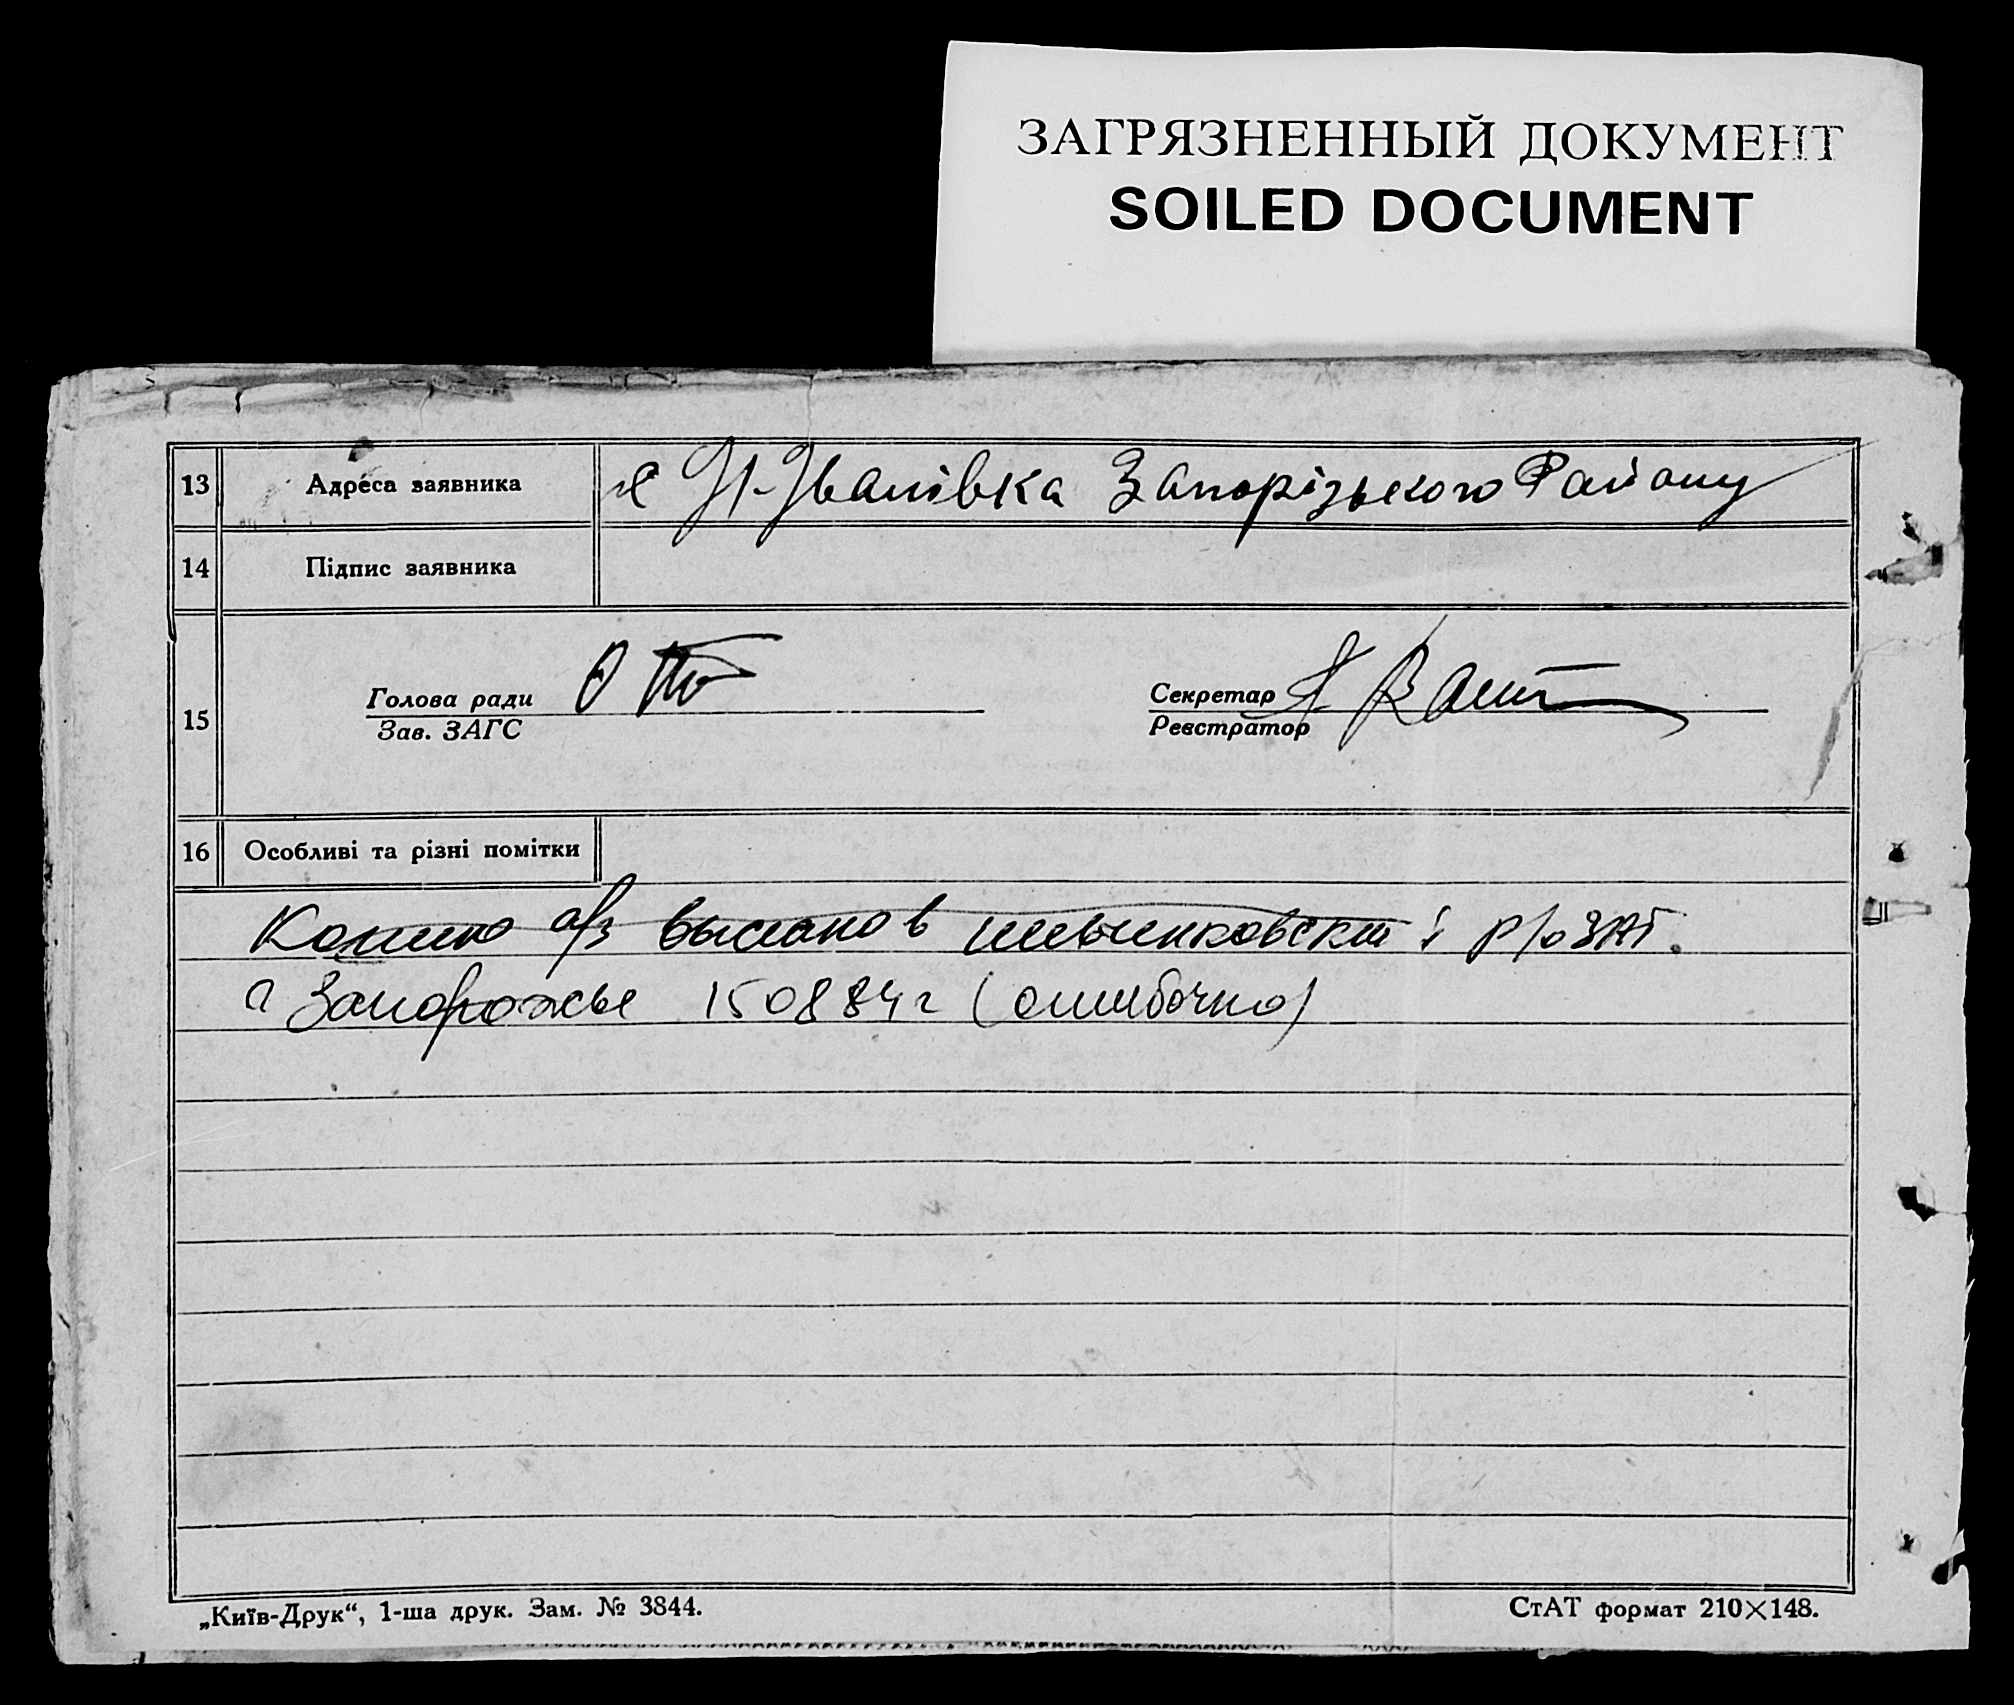 ЗАГРЯЗНЕННЫЙ ДОКУМЕНТ
SOILED DOCUMENT
13 Адреса заявника с Н-Іванівка Запорізького Району
14 Підпис заявника
Голова ради
Зав. ЗАГС
15
Секретар
Реєстратор
16 Особливі та різні помітки
Копию а/з выслано в р/о ЗАГ.
г Запорожье 150884 г (ошибочно)
„Київ-Друк“, 1-ша друк. Зам. № 3844.
СтАТ формат 210×148.